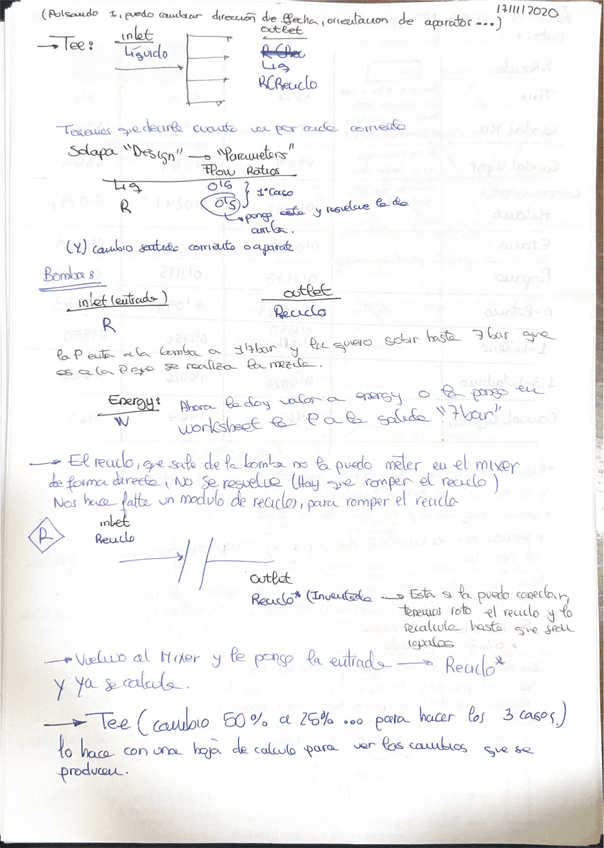 17/11/2020
(Pulsando 1, puedo cambiar dirección de flecha, orientacion de aparatos ...)
→ Tee: inlet outlet
Líquido
Liq
RCReciclo
Tenemos que decirle cuanto va por cada corriente
Solapa "Design" → "Parameters"
Flow Ratios
Liq 0'5 } 1º Caso
R 0'5
→ pongo este y resuelve la de
arriba.
(Y) cambio sentido corriente o aparato
Bomba:
inlet (entrada) outlet
R Reciclo
la P entra a la bomba a 1'7bar y la quiero subir hasta 7bar que
es a la P que se realiza la mezcla.
Energy: Ahora le doy valor a energy o le pongo en
W worksheet la P a la salida "7bar"
→ El reciclo, que sale de la bomba no lo puedo meter en el mixer
de forma directa, No se resuelve (Hay que romper el reciclo)
Nos hace falta un modulo de reciclos, para romper el reciclo
R inlet
Reciclo
outlet
Reciclo* (Inventada → Esta si la puedo conectar,
tenemos roto el reciclo y lo
recalcula hasta que sean
iguales
→ Vuelvo al Mixer y le pongo la entrada → Reciclo*
y ya se calcula.
→ Tee (cambio 50% a 25% ... para hacer los 3 casos)
lo hace con una hoja de calculo para ver los cambios que se
producen.